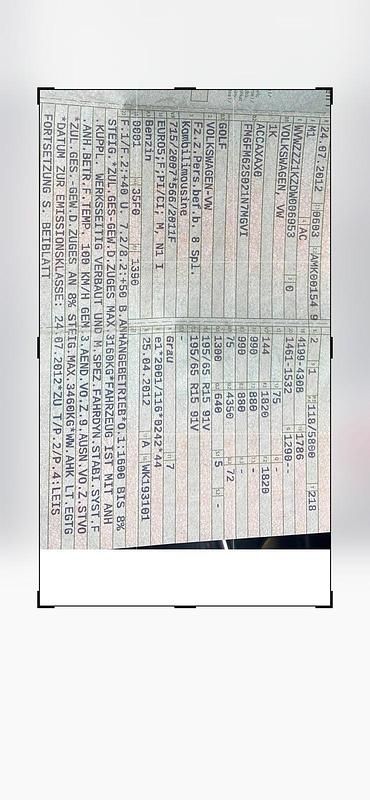 24.07.2012 0603 AMK00154 9
M1 AC
WVWZZZ1KZDW006953
VOLKSWAGEN, VW 0
1K
ACCAXAX0
FM6FM62S021N7MGVI
GOLF
VOLKSWAGEN-VW
Fz.z.Pers.bef.b. 8 Spl.
Kombilimousine
715/2007*566/2011F
EURO5;F;PI/CI; M, N1 I
Benzin
0001 35F0 1390
2 1 118/5000 218
4199-4308 1786
1461-1532 1290--
- 75 -
144 1820 1820
- 880 -
990 880 -
75 4350 72
1300 640 5 -
195/65 R15 91V
195/65 R15 91V
grau 7
e1*2001/116*0242*44
25.04.2012 A WK193101
F.1/F.2:+40 U. 7.2/8.2:+50 B.ANHÄNGEBETRIEB*O.1:1600 BIS 8%
STEIG.*ZUL.GES-GEW.D.ZUGES MAX.3160KG*FAHRZEUG IST MIT ANH
.KUPPL. WERKSSEITIG VERBAUT UND M.SPEZ.FAHRDYN.STABI.SYST.F
.ANH.BETR.F.TEMP. 100 KM/H GEM.3.AEND.VO.Z.9.AUSN.VO.Z.STVO
*ZUL.GES.-GEW.D.ZUGES AN 8% STEIG.MAX.3460KG*WW.AHK LT.EGTG
*DATUM ZUR EMISSIONSKLASSE: 24.07.2012*ZU T/P.2/P.4:LEIS
FORTSETZUNG S. BEIBLATT